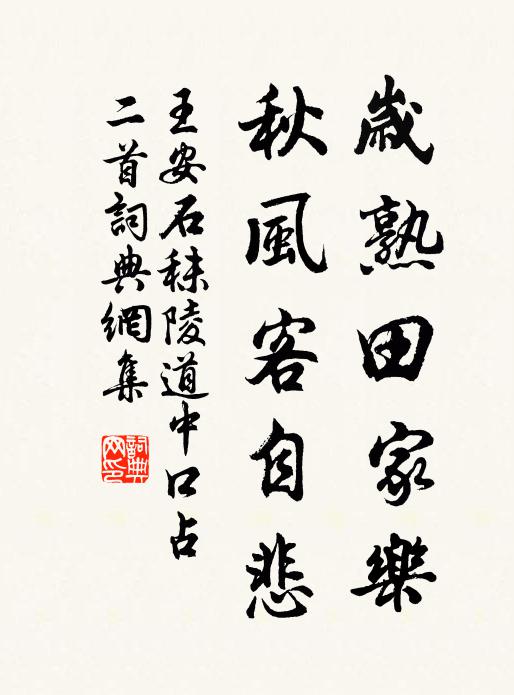 歲熟田家樂
秋風客自悲
王安石秣陵道中口占
二首詞典網集
詞典网印